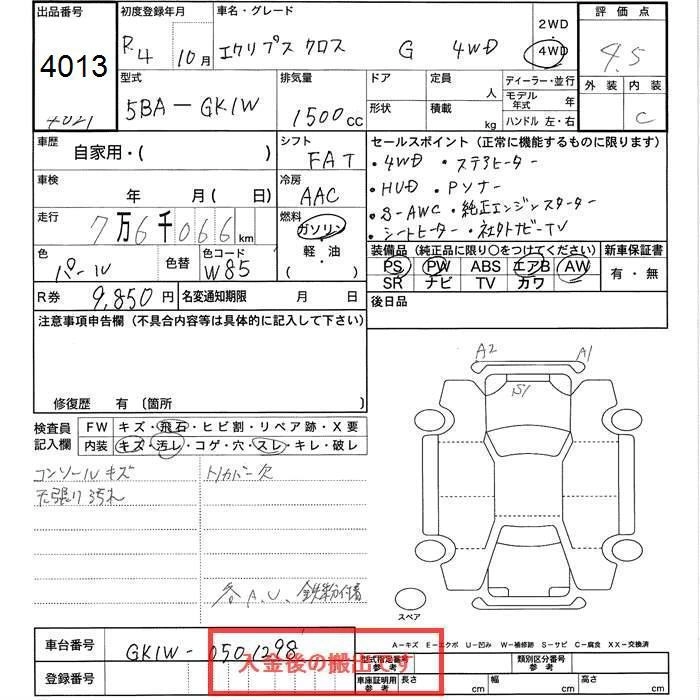 出品番号 初度登録年月 車名・グレード 2WD 評価点
4013 R.4 10月 エクリプス クロス G 4WD ・ 4WD 4.5
型式 排気量 ドア 定員 人 ディーラー・並行 外装 内装
5BA-GK1W 1500cc 形状 積載 kg モデル年式 年 C
4021 ハンドル 左・右
車歴 自家用・( ) シフト FAT セールスポイント (正常に機能するものに限ります)
・4WD ・ステアヒーター
車検 年 月(日) 冷房 AAC ・HUD ・Pソナー
・S-AWC ・純正エンジンスターター
走行 7万6千066km 燃料 ガソリン ・シートヒーター ・社外ナビーTV
軽・油
( )
色 パール 色替 色コード W85 装備品 (純正品に限り〇をつけてください) 新車保証書
PS PW ABS エアB AW 有・無
SR ナビ TV カワ
R券 9,850円 名変通知期限 月 日 後日品
注意事項申告欄 (不具合内容等は具体的に記入して下さい)
修復歴 有 (箇所 )
A2 A1
S1
検査員記入欄 FW キズ・飛石・ヒビ割・リペア跡・X要
内装 キズ・汚レ・コゲ・穴・スレ・キレ・破レ
コンソールキズ トノカバー欠
天張り汚れ
各A.U、鉄粉付着
スペア
A-キズ E-エクボ U-凹み W-補修跡 S-サビ C-腐食 XX-交換済
車台番号 GK1W-0501298 型式指定番号 参考 類別区分番号 参考
入金後の搬出です
登録番号 車庫証明用 参考 長さ cm 幅 cm 高さ cm